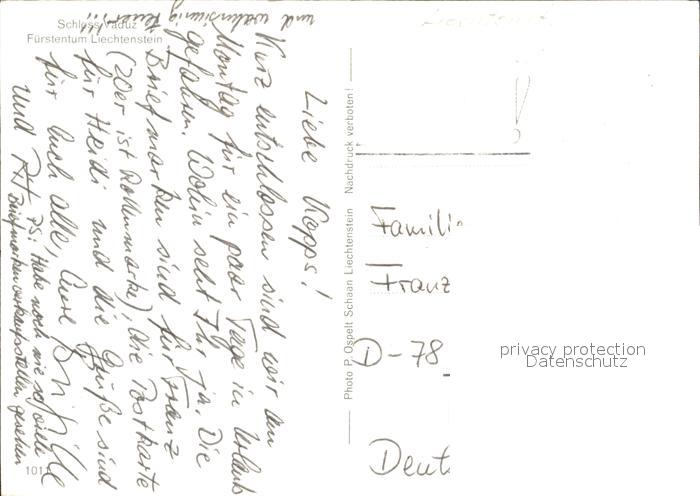 Schloss Vaduz
Fürstentum Liechtenstein
Liebe Kopps!
Kurz entschlossen sind wir am
Montag für ein paar Tage in Urlaub
gefahren. Wohin seht Ihr ja. Die
Briefmarken sind für Franz
(20er ist Rollenmarke), die Postkarte
für Heidi und die Grüße sind
für Euch alle, Eure
und
PS: Habe noch nie so viele
Briefmarkenverkaufsstellen gesehen
und wahnsinnig teuer!!!
1011
Photo P. Ospelt Schaan Liechtenstein Nachdruck verboten!
Familie
Franz
D-78
Deut
privacy protection
Datenschutz